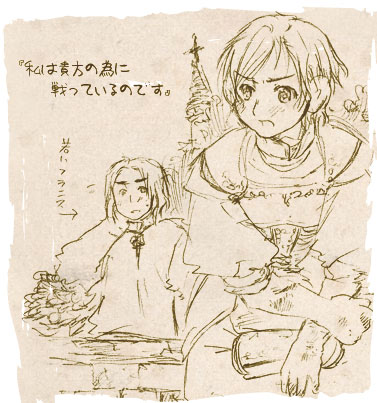 『私は貴方の為に
戦っているのです』
若いフランス→